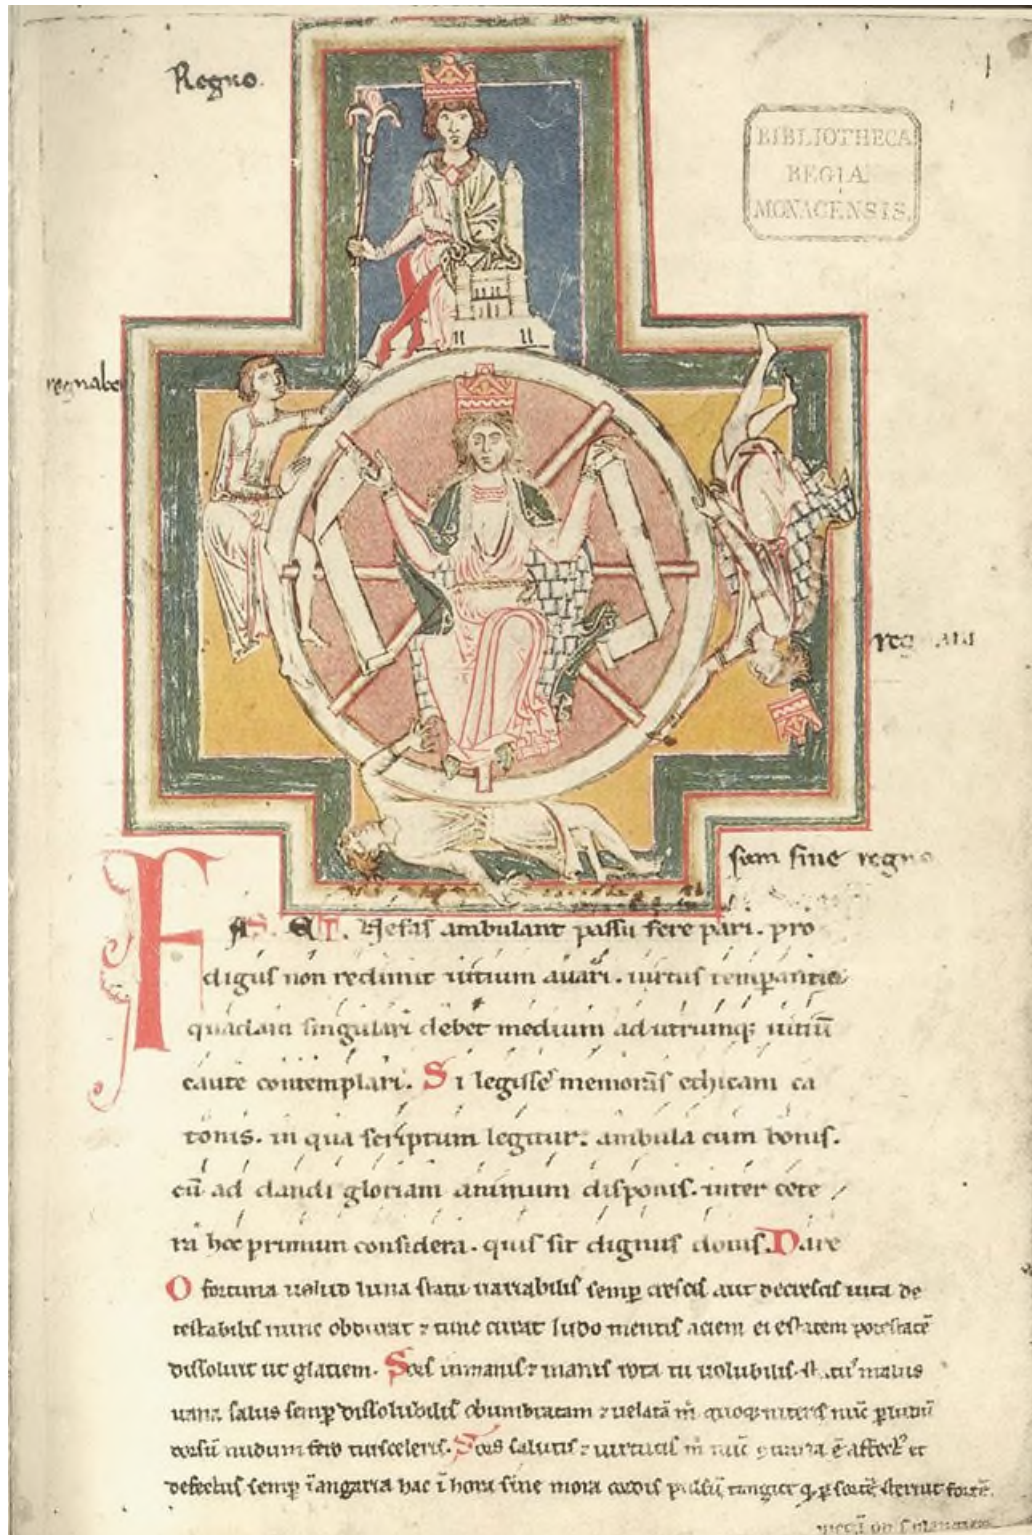 Regno.
1
BIBLIOTHECA
REGIA
MONACENSIS.
regnabo
sum sine regno
FAS. ET. Nefas ambulant passu fere pari. pro
digus non redimit uitium auari. uirtus temperantie
quadam singulari debet medium ad utrumq; uitiū
caute contemplari. Si legisse memoras ethicam ca
tonis. in qua scriptum legitur. ambula cum bonis.
cū ad dandi gloriam animum disponis. inter cete
ra hoc primum considera. quis sit dignus donis. Dare
O fortuna uelud luna statu uariabilis semp crescis aut decrescis uita de
testabilis nunc obdurat ⁊ tunc curat ludo mentis aciem egestatem potestatē
dissoluit ut glaciem. Sors inmanis ⁊ inanis rota tu uolubilis status malus
uana salus semp dissolubilis obumbratam ⁊ uelatā m̄ quoq; niteris nūc p ludū
dorsū nudum fero tui sceleris. Sors salutis ⁊ uirtutis m̄ nūc ē affectꝰ et
defectus semp ī angaria hac ī hora sine mora cordis pulsū tangite q p sortē sternit fortē